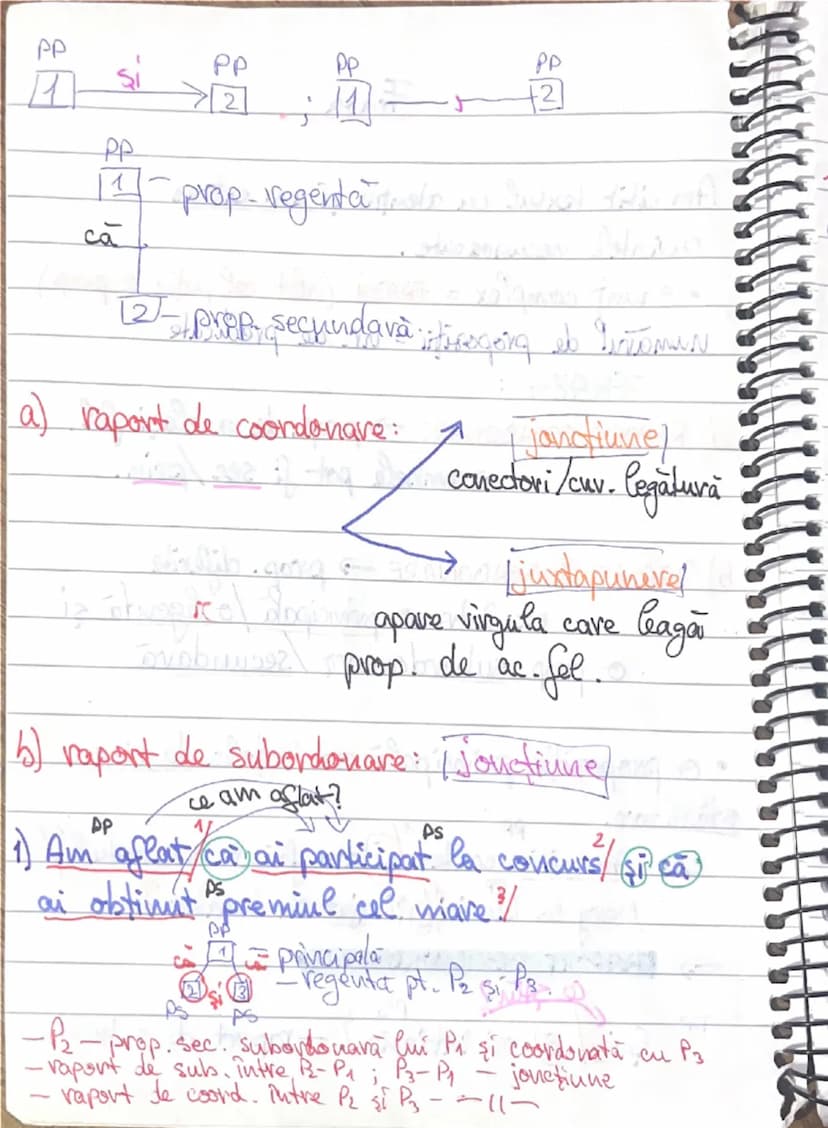 PP PP PP PP
1 și 2 ; 1 , 2
PP
1 - prop. regentă
că
2 - prop. secundară
a) raport de coordonare: joncțiune
conectori/cuv. legătură
juxtapunere
apare virgula care leagă
prop. de ac. fel.
b) raport de subordonare: joncțiune
ce am aflat?
PP 1/ PS 2/
1) Am aflat/ că ai participat la concurs/ și că
PS 3/
ai obținut premiul cel mare./
PP
că 1 că = principală
2 și 3 - regentă pt. P2 și P3.
PS PS
- P2 - prop. sec. subordonară lui P1 și coordonată cu P3
- raport de sub. între P2-P1 ; P3-P1 - joncțiune
- raport de coord. între P2 și P3 - -11-